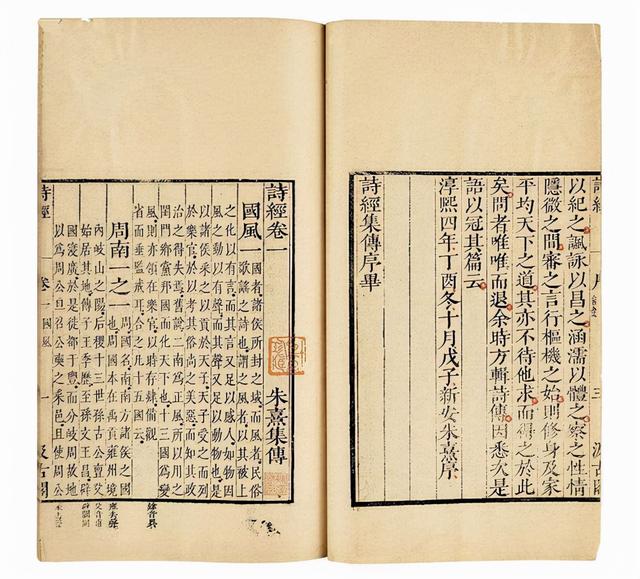 詩經 三 汲古閣
以紀之諷詠以昌之涵濡以體之察之性情
隱微之間審之言行樞機之始則修身及家
平均天下之道其亦不待他求而得之於此
矣問者唯唯而退余時方輯詩傳因悉次是
語以冠其篇云
淳熙四年丁酉冬十月戊子新安朱熹序
詩經集傳序畢
詩經卷一 朱熹集傳
國風一 國者諸侯所封之域而風者民俗
歌謠之詩也謂之風者以其被上
之化以有言而其言又足以感人如物因
風之動以有聲而其聲又足以動物也是
以諸侯采之以貢於天子天子受之而列
於樂官於以考其俗尚之美惡而知其政
治之得失焉舊說二南為正風所以用之
閨門鄉黨邦國而化天下也十三國為變
風則亦領在樂官以時存肄備觀
省而垂監戒耳合之凡十五國云
周南一之一 周國名南南方諸侯之國
也周國本在禹貢雍州境
內岐山之陽后稷十三世孫古公亶父
始居其地傳子王季歷至孫文王昌辟
國寖廣於是徙都于豐而分岐周故地
以為周公旦召公奭之采邑且使周公
詩經 卷一 國風 一 汲古閣
雍去聲
父音甫
辟闢同